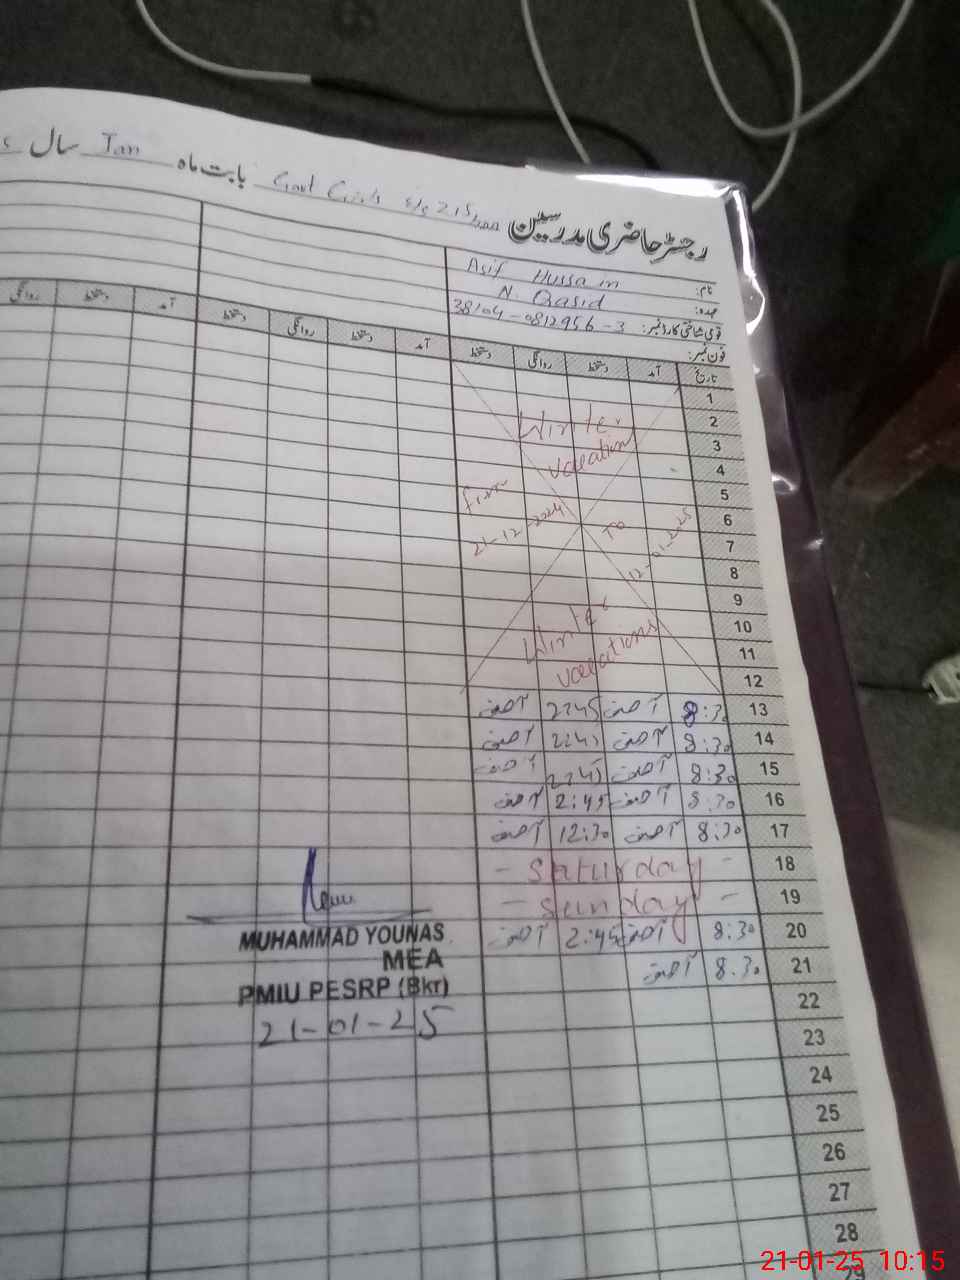 رجسٹر حاضری مدرسین Govt Girls E/S 215/ بابت ماہ Jan سال
نام: Asif Hussain
عہدہ: N. Qasid
قومی شناختی کارڈ نمبر: 38104-0812956-3
فون نمبر:
تاریخ آمد دستخط روانگی دستخط آمد دستخط روانگی دستخط آمد دستخط روانگی
1
2 Winter
3 vacation
4
5 From
6 21-12-2024 To 12-01-2025
7
8
9
10 Winter
11 vacations
12
13 8:30 آصف 2:45 آصف
14 8:30 آصف 2:45 آصف
15 8:30 آصف 2:45 آصف
16 8:30 آصف 2:45 آصف
17 8:30 آصف 12:30 آصف
18 - Saturday -
19 - Sunday -
20 8:30 آصف 2:45 آصف
21 8:30 آصف
22
23
24
25
26
27
28
29
MUHAMMAD YOUNAS
MEA
PMIU PESRP (Bkr)
21-01-25
21-01-25 10:15